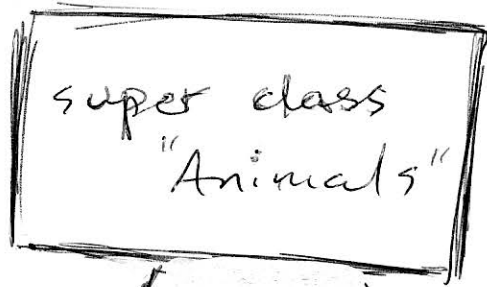 super class
"Animals"